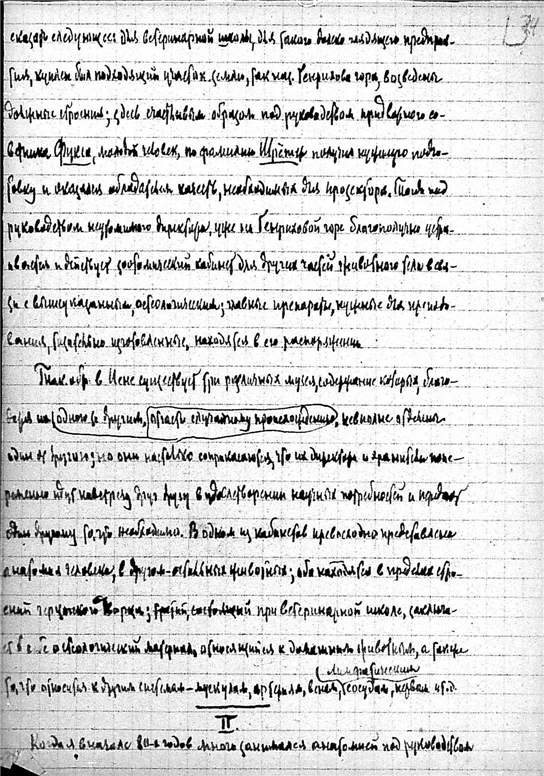 34
сказать следующее: для ветеринарной школы, для такого далеко глядящего предпри-
ятия, куплен был подходящий участок земли, так наз. Генрихова гора, возведены
должные строения; здесь счастливым образом под руководством придворного со-
ветника Фукса, молодой человек, по фамилии Шрётер получил лучшую подго-
товку и оказался обладателем качеств, необходимых для прозектора. Таким под
руководством неутомимого директора, уже на Генриховой горе благополучно устра-
ивается и действует зоотомический кабинет для других частей животного тела в свя-
зи с вышеуказанным, остеологическим; главные препараты, нужные для препода-
вания, тщательно изготовленные, находятся в его распоряжении.
Так. обр. в Иене существует три различных музея, содержание которых, благо-
даря их одного и другим, отчасти случайному происхождению, не вполне отделены
один от другого; но они настолько соприкасаются, что их директора и хранители попе-
ременно идут навстречу друг другу в удовлетворении научных потребностей и передают
один другому то, что необходимо. В одном из кабинетов превосходно представлена
анатомия человека; в другом - остальных животных; оба находятся в пределах стро-
ений герцогского Корца; третий, состоящий при ветеринарной школе, заключа-
ет в себе остеологический материал, относящийся к домашним животным, а также
то, что относится к другим системам - мускулам, артериям, венам, лимфатическим сосудам, нервам и т.д.
II
Когда я в начале 80-х годов много занимался анатомией под руководством